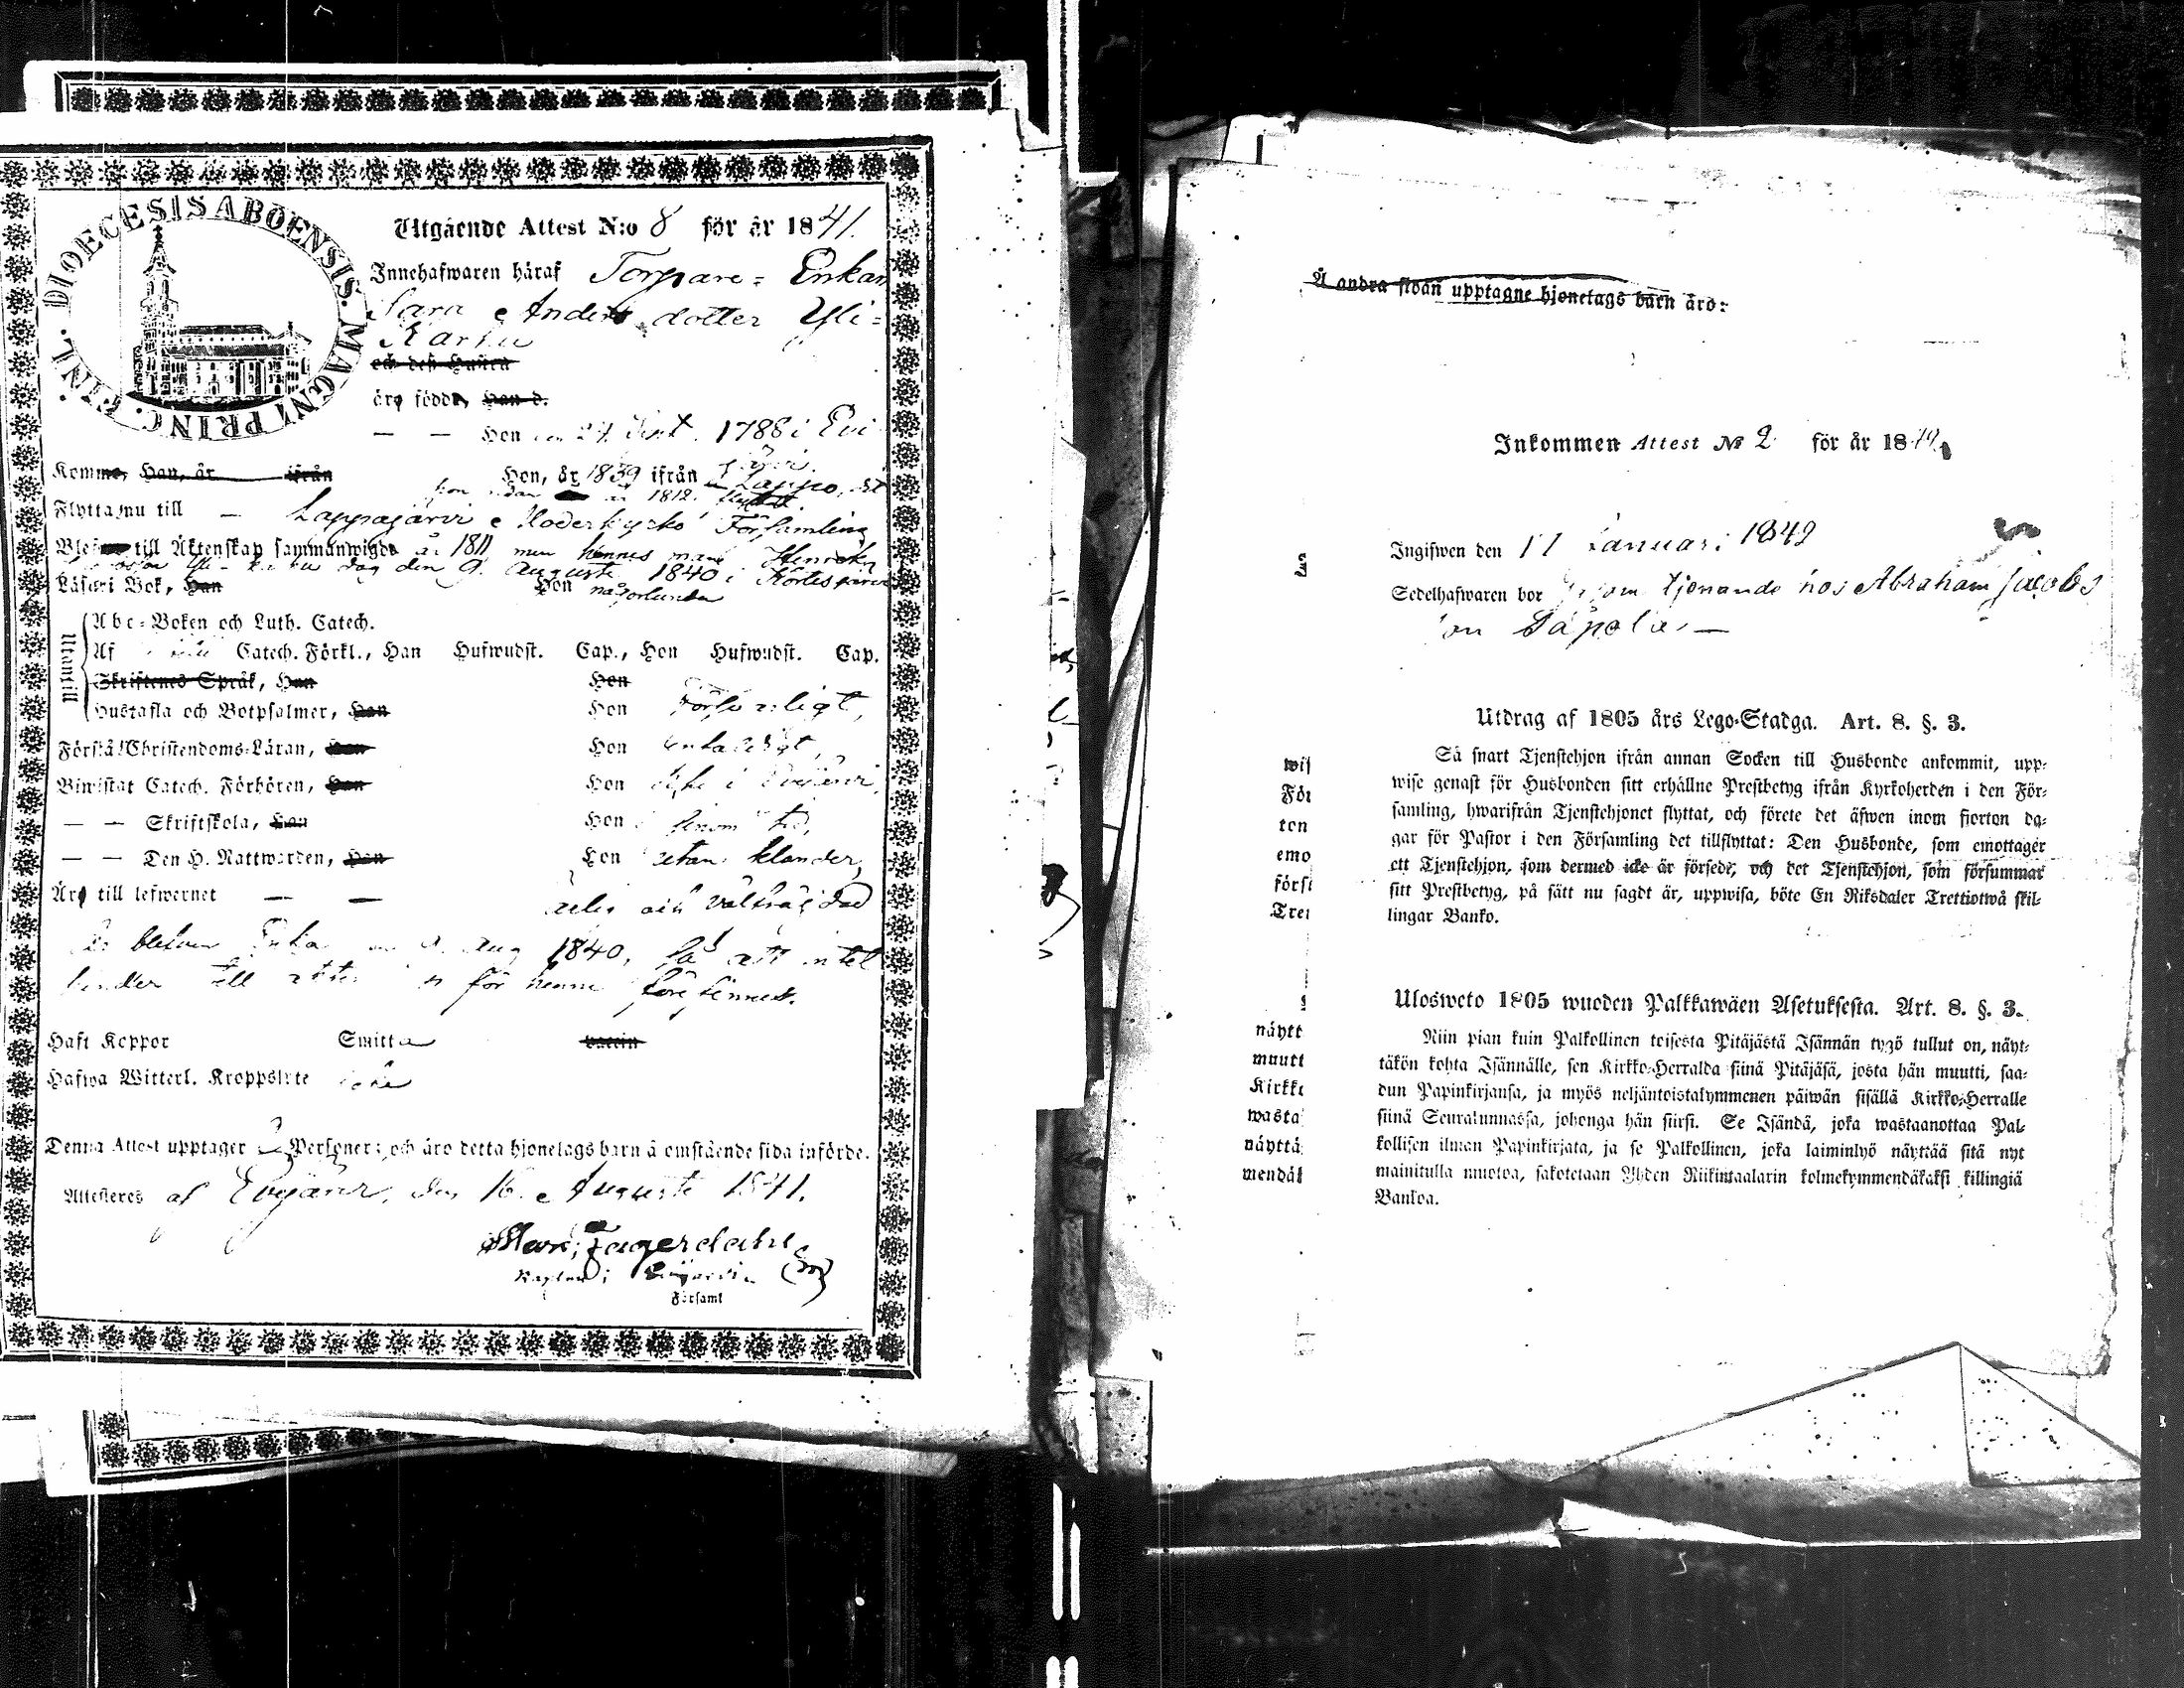 DIOECESIS ABOENSIS. MAGNI PRINC. FINL.
Utgående Attest N:o 8 för år 1841.
Innehafwaren häraf Torpare= Enkan
Sara Anders dotter Yli=
Karhu
och deß Hustru
äro födde, Han d.
— — Hon 1788 i Evi
järvi.
Komme, Han, år ifrån Hon, år 1839 ifrån Lappo,
år 1812.
Flytta nu till — Lappajärvi Moderkyrko Församling
Blef till Äktenskap sammanwigde år 1811 men hennes man Henrik
dog den 9 Augusti 1840 i Kortesjärvi
Läsa i Bok, Han Hon någorlunda
Utantill
Abc-Boken och Luth. Catech.
Af Catech. Förkl., Han Hufwudst. Cap., Hon Hufwudst. Cap.
Skriftenes Språk, Han Hon
Hustafla och Botpsalmer, Han Hon Försvarligt,
Förstå Christendoms-Läran, Han Hon enfaldigt,
Biwistat Catech. Förhören, Han Hon i Evijärvi,
— — Skriftskola, Han Hon i sinom tid,
— — Den H. Nattwarden, Han Hon utan klander,
Äro till lefwernet — — ärlig och välfräjdad
Enka Aug 1840, så att intet
hinder till för henne förefinnes.
Haft Koppor Smitta vaccin
Hafwa Witterl. Kroppslyte icke
Denna Attest upptager Personer; och äro detta hjonelags barn å omstående sida införde.
Attesteras af Evijärvi, den 16 Augusti 1841.
Fagerdahl
Kaplan i Evijärvi
Församl
Å andra sidan upptagne hjonelags barn äro:
Inkommen Attest No 2 för år 18
Ingifwen den 11 Januari 1842
Sedelhafwaren bor såsom tjenande hos Abraham Jacobs
son Sápola. —
Utdrag af 1805 års Lego-Stadga. Art. 8. §. 3.
Så snart Tjenstehjon ifrån annan Socken till Husbonde ankommit, upp-
wise genast för Husbonden sitt erhållne Prestbetyg ifrån Kyrkoherden i den För-
samling, hwarifrån Tjenstehjonet flyttat, och förete det äfwen inom fjorton da-
gar för Pastor i den Församling det tillflyttat: Den Husbonde, som emottager
ett Tjenstehjon, som dermed icke är försedt, och det Tjenstehjon, som försummar
sitt Prestbetyg, på sätt nu sagdt är, uppwisa, böte En Riksdaler Trettiotwå skil-
lingar Banko.
Ulosweto 1805 wuoden Palkkawäen Asetuksesta. Art. 8. §. 3.
Niin pian kuin Palkollinen toisesta Pitäjästä Isännän tygö tullut on, näyt-
täkön kohta Isännälle, sen Kirkko-Herralda siinä Pitäjäsä, josta hän muutti, saa-
dun Papinkirjansa, ja myös neljäntoistakymmenen päiwän sisällä Kirkko-Herralle
siinä Seurakunnassa, johonga hän siirsi. Se Isändä, joka wastaanottaa Pal-
kollisen ilman Papinkirjata, ja se Palkollinen, joka laiminlyö näyttää sitä nyt
mainitulla muotoa, sakotetaan Yhden Riikintaalarin kolmekymmendäkaksi killingiä
Bankoa.
wis
För
ton
emo
förs
Tret
näytt
muutt
Kirkko
wasta
näyttä
mendäk